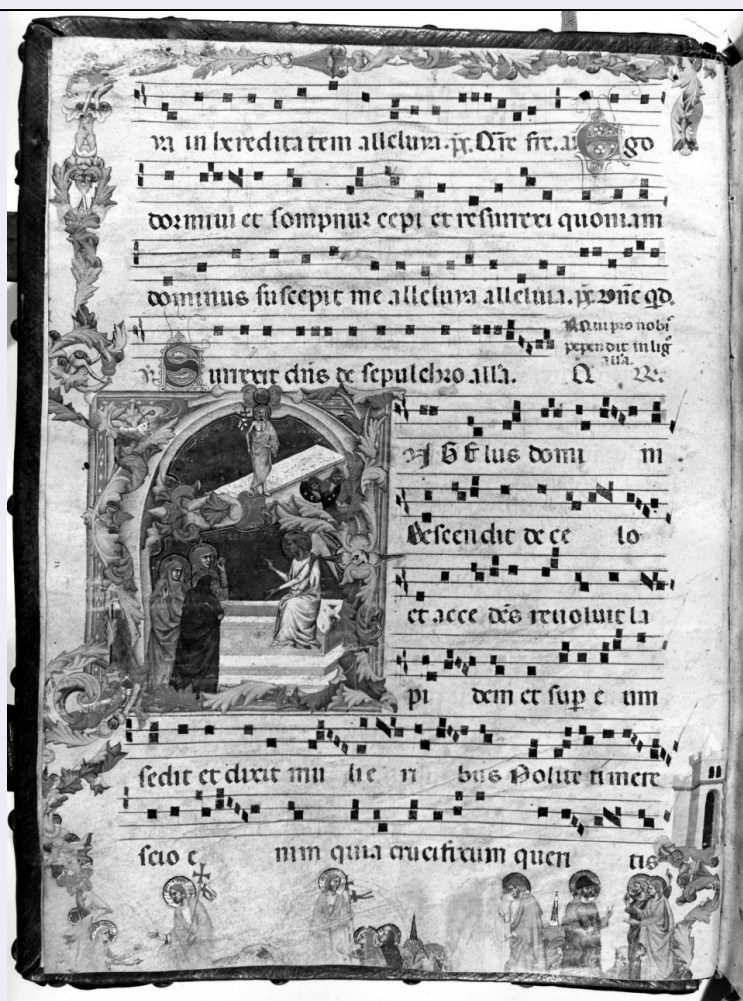 in hereditatem alleluya. Ego
dormiui et sompnum cepi et resurrexi quoniam
dominus suscepit me alleluya alleluia.
Qui pro nobis
pependit in lig
alla.
Surrexit dns de sepulchro alla.
AGElus domi ni
descendit de ce lo
et acce dens reuoluit la
pi dem et sup e um
sedit et dixit mu lie ri bus Nolite timere
scio e nim quia crucifixum queri tis